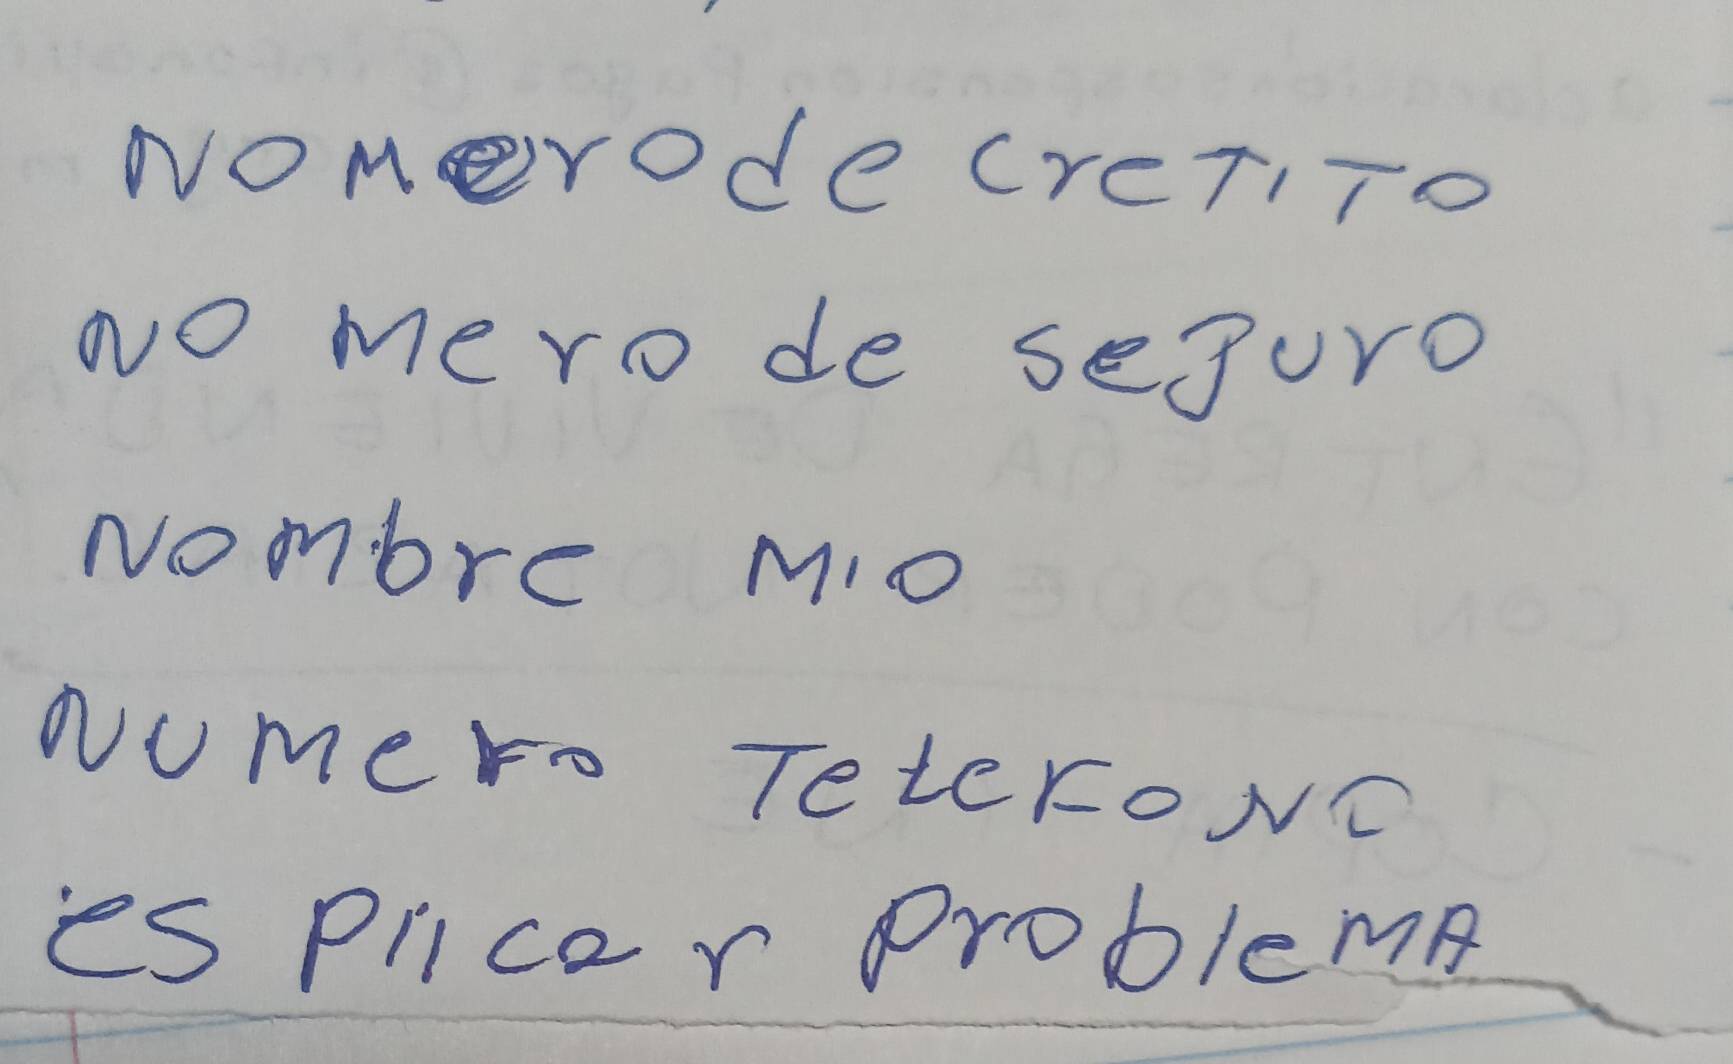 NOMero de creTiTo
NO Mero de seguro
NOMbre Mio
NUMero TeleFoNo
es Plicar ProbleMA